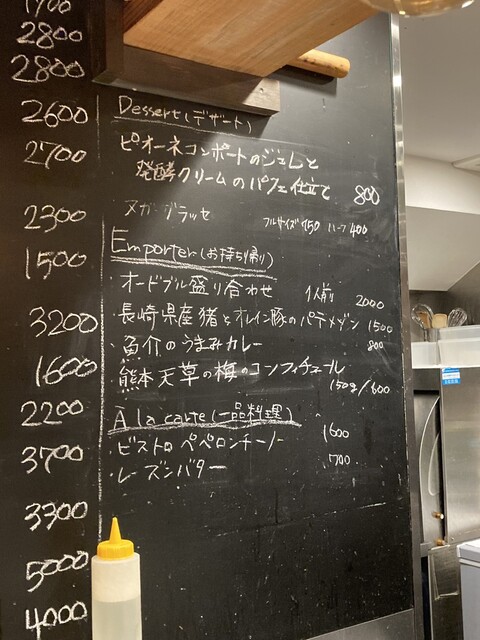 2800
2800
2600
2700
2300
1500
3200
1600
2200
3700
3300
5000
4000
Dessert(デザート)
ピオーネコンポートのジュレと
発酵クリームのパフェ仕立て 800
ヌガーグラッセ フルサイズ750 ハーフ400
Emporter(お持ち帰り)
・オードブル盛り合わせ 1人前 2000
・長崎県産猪とオレイン豚のパテメゾン 1500
・魚介のうまみカレー 800
・熊本天草の梅のコンフィチュール
150g/600
A la carte(一品料理)
・ビストロペペロンチーノ 1600
・レーズンバター 700